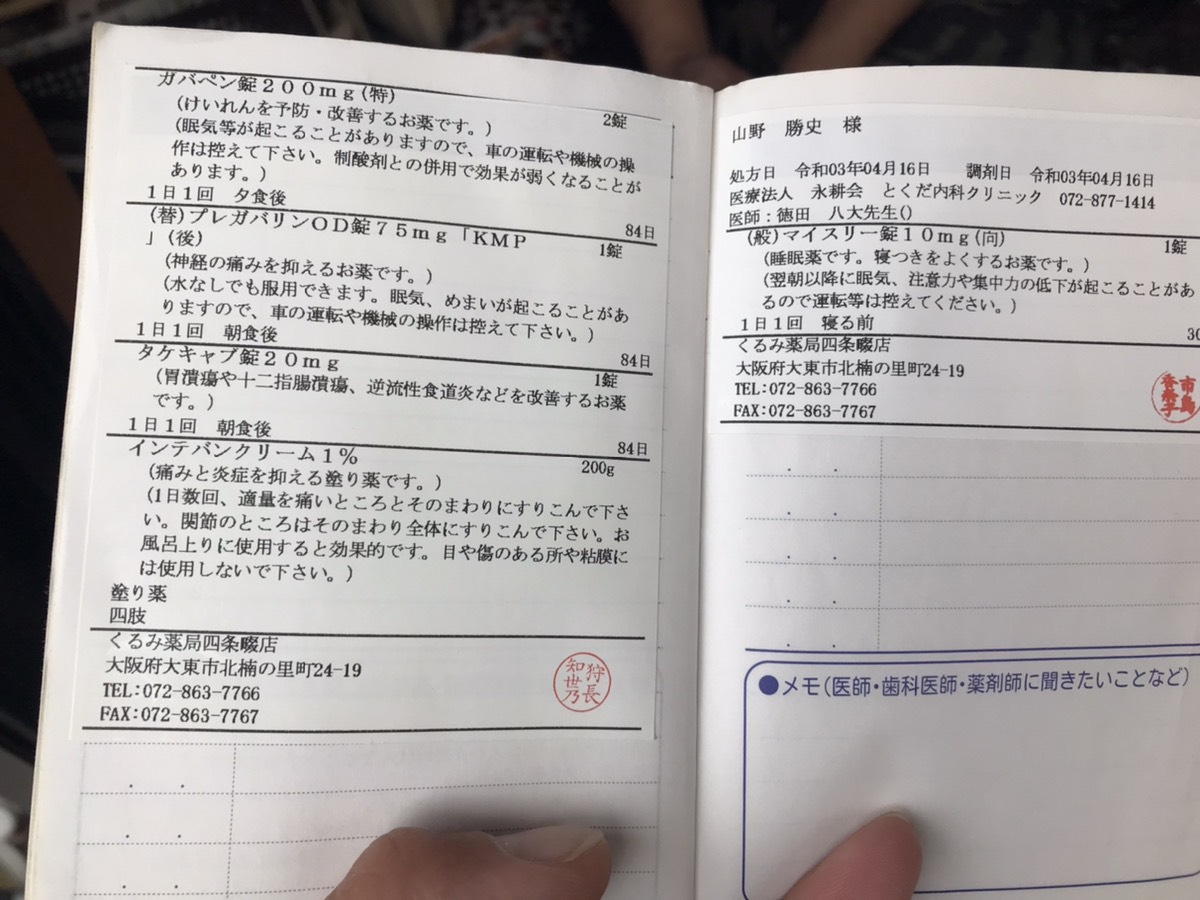 ガバペン錠200mg(特)
2錠
(けいれんを予防・改善するお薬です。)
(眠気等が起こることがありますので、車の運転や機械の操
作は控えて下さい。制酸剤との併用で効果が弱くなることが
あります。)
1日1回 夕食後
84日
(替)プレガバリンOD錠75mg「KMP
1錠
」(後)
(神経の痛みを抑えるお薬です。)
(水なしでも服用できます。眠気、めまいが起こることがあ
りますので、車の運転や機械の操作は控えて下さい。)
1日1回 朝食後
84日
タケキャブ錠20mg
1錠
(胃潰瘍や十二指腸潰瘍、逆流性食道炎などを改善するお薬
です。)
1日1回 朝食後
84日
インテバンクリーム1%
200g
(痛みと炎症を抑える塗り薬です。)
(1日数回、適量を痛いところとそのまわりにすりこんで下さ
い。関節のところはそのまわり全体にすりこんで下さい。お
風呂上りに使用すると効果的です。目や傷のある所や粘膜に
は使用しないで下さい。)
塗り薬
四肢
くるみ薬局四条畷店
大阪府大東市北楠の里町24-19
TEL:072-863-7766
FAX:072-863-7767
狩長
知世乃
山野 勝史 様
処方日 令和03年04月16日 調剤日 令和03年04月16日
医療法人 永耕会 とくだ内科クリニック 072-877-1414
医師:徳田 八大先生()
(般)マイスリー錠10mg(向)
1錠
(睡眠薬です。寝つきをよくするお薬です。)
(翌朝以降に眠気、注意力や集中力の低下が起こることがあ
るので運転等は控えてください。)
1日1回 寝る前
30
くるみ薬局四条畷店
大阪府大東市北楠の里町24-19
TEL:072-863-7766
FAX:072-863-7767
市島
香奈子
●メモ(医師・歯科医師・薬剤師に聞きたいことなど)